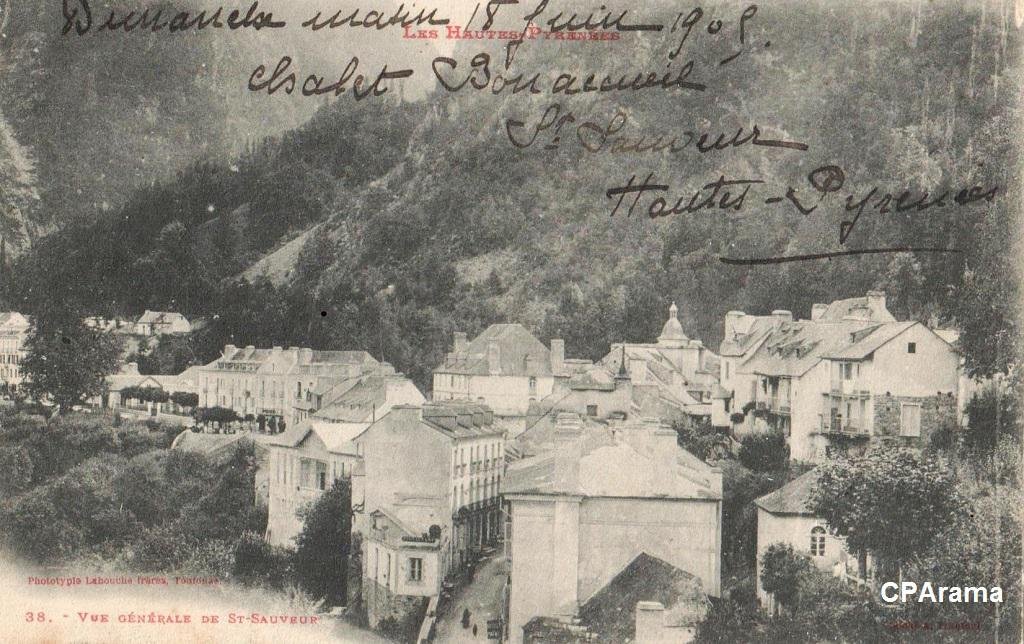 Dimanche matin 18 Juin 1905.
LES HAUTES-PYRENEES
Chalet Bonaccueil
St Sauveur
Hautes-Pyrenées
Phototypie Labouche frères, Toulouse.
38. - VUE GÉNÉRALE DE ST-SAUVEUR
CPArama